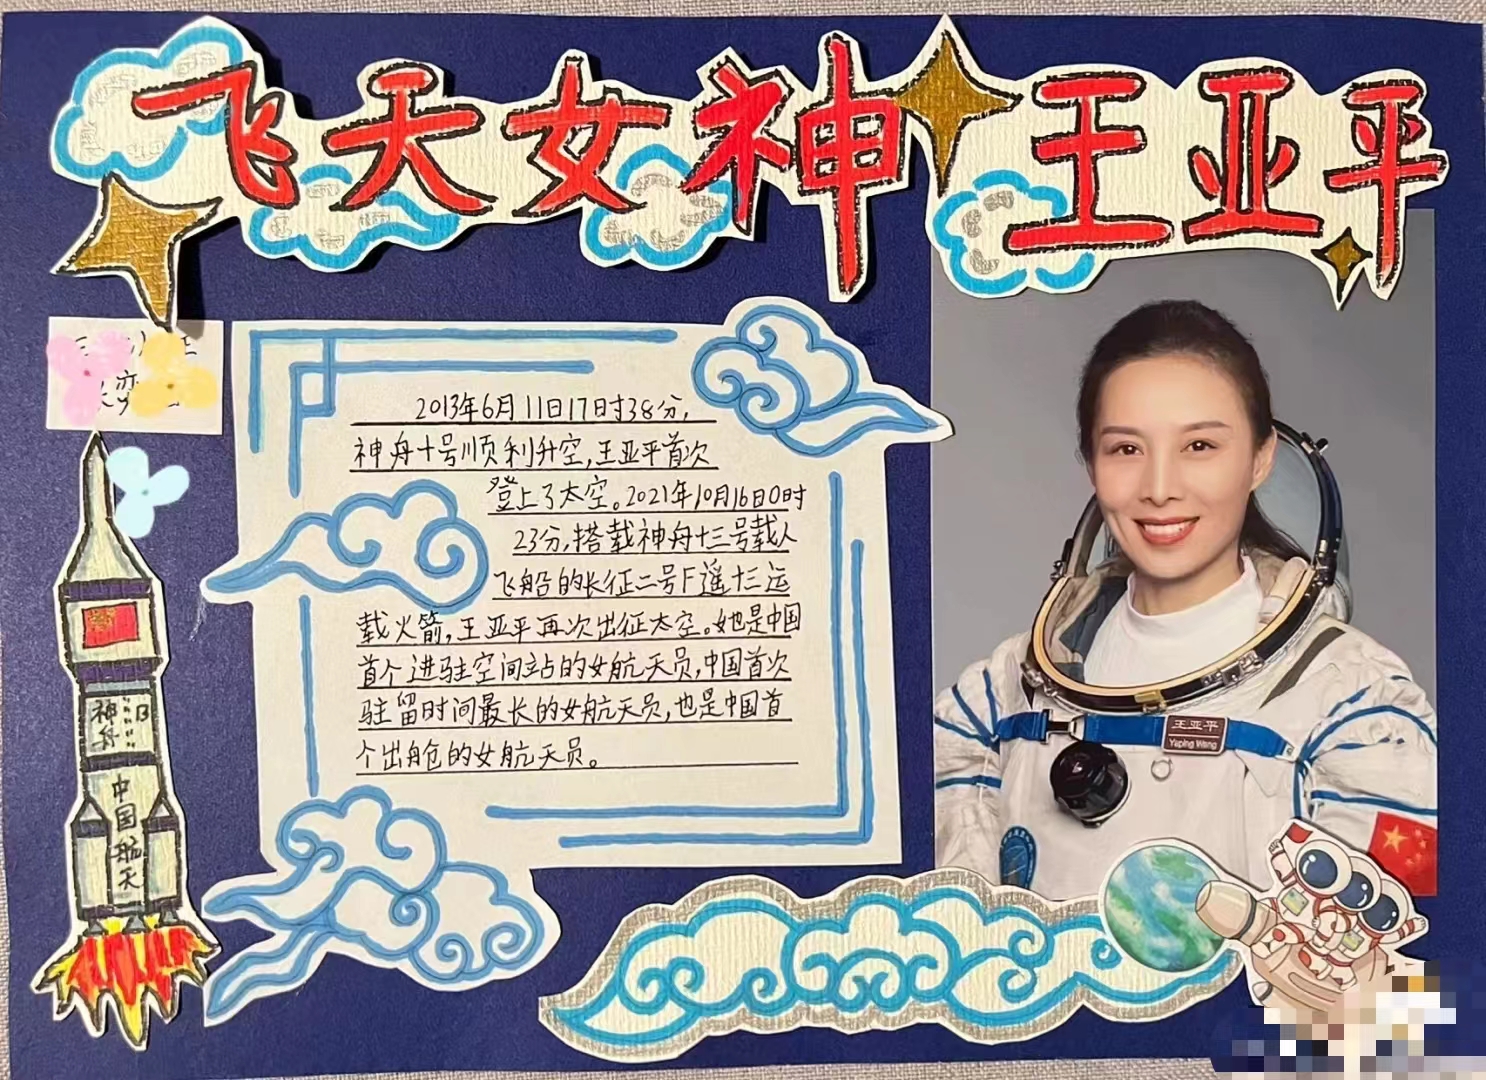 飞天女神 王亚平
2013年6月11日17时38分,
神舟十号顺利升空,王亚平首次
登上了太空。2021年10月16日0时
23分,搭载神舟十三号载人
飞船的长征二号F遥十三运
载火箭,王亚平再次出征太空。她是中国
首个进驻空间站的女航天员,中国首次
驻留时间最长的女航天员,也是中国首
个出舱的女航天员。
神舟
中国航天
王亚平
Yaping Wang